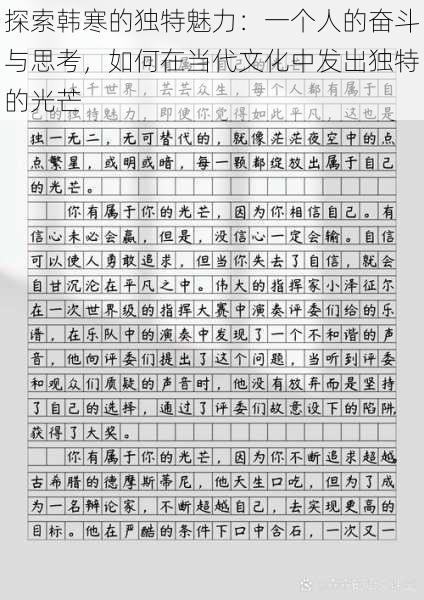 探索韩寒的独特魅力：一个人的奋斗
与思考，如何在当代文化中发出独特
的光芒
大千世界，芸芸众生，每个人都有属于自
己的独特魅力，即使你觉得如此平凡，这也是
独一无二，无可替代的，就像茫茫夜空中的点
点繁星，或明或暗，每一颗都绽放出属于自己
的光芒。
你有属于你的光芒，因为你相信自己。有
信心未必会赢，但是，没信心一定会输。自信
可以使人勇敢追求，但当你失去了自信，就会
自甘沉沦在平凡之中。伟大的指挥家小泽征尔
在一次世界级的指挥大赛中演奏评委们给的乐
谱，在乐队中的演奏中发现了一个不和谐的声
音，他向评委们提出了这个问题，当听到评委
和观众们质疑的声音时，他没有放弃而是坚持
了自己的选择，通过了评委们故意设下的陷阱
获得了大奖。
你有属于你的光芒，因为你不断追求超越
古希腊的德摩斯蒂尼，他天生口吃，但为了成
为一名辩论家，不断超越自己，去实现更高的
目标。他在严酷的条件下口中含石，一次又一